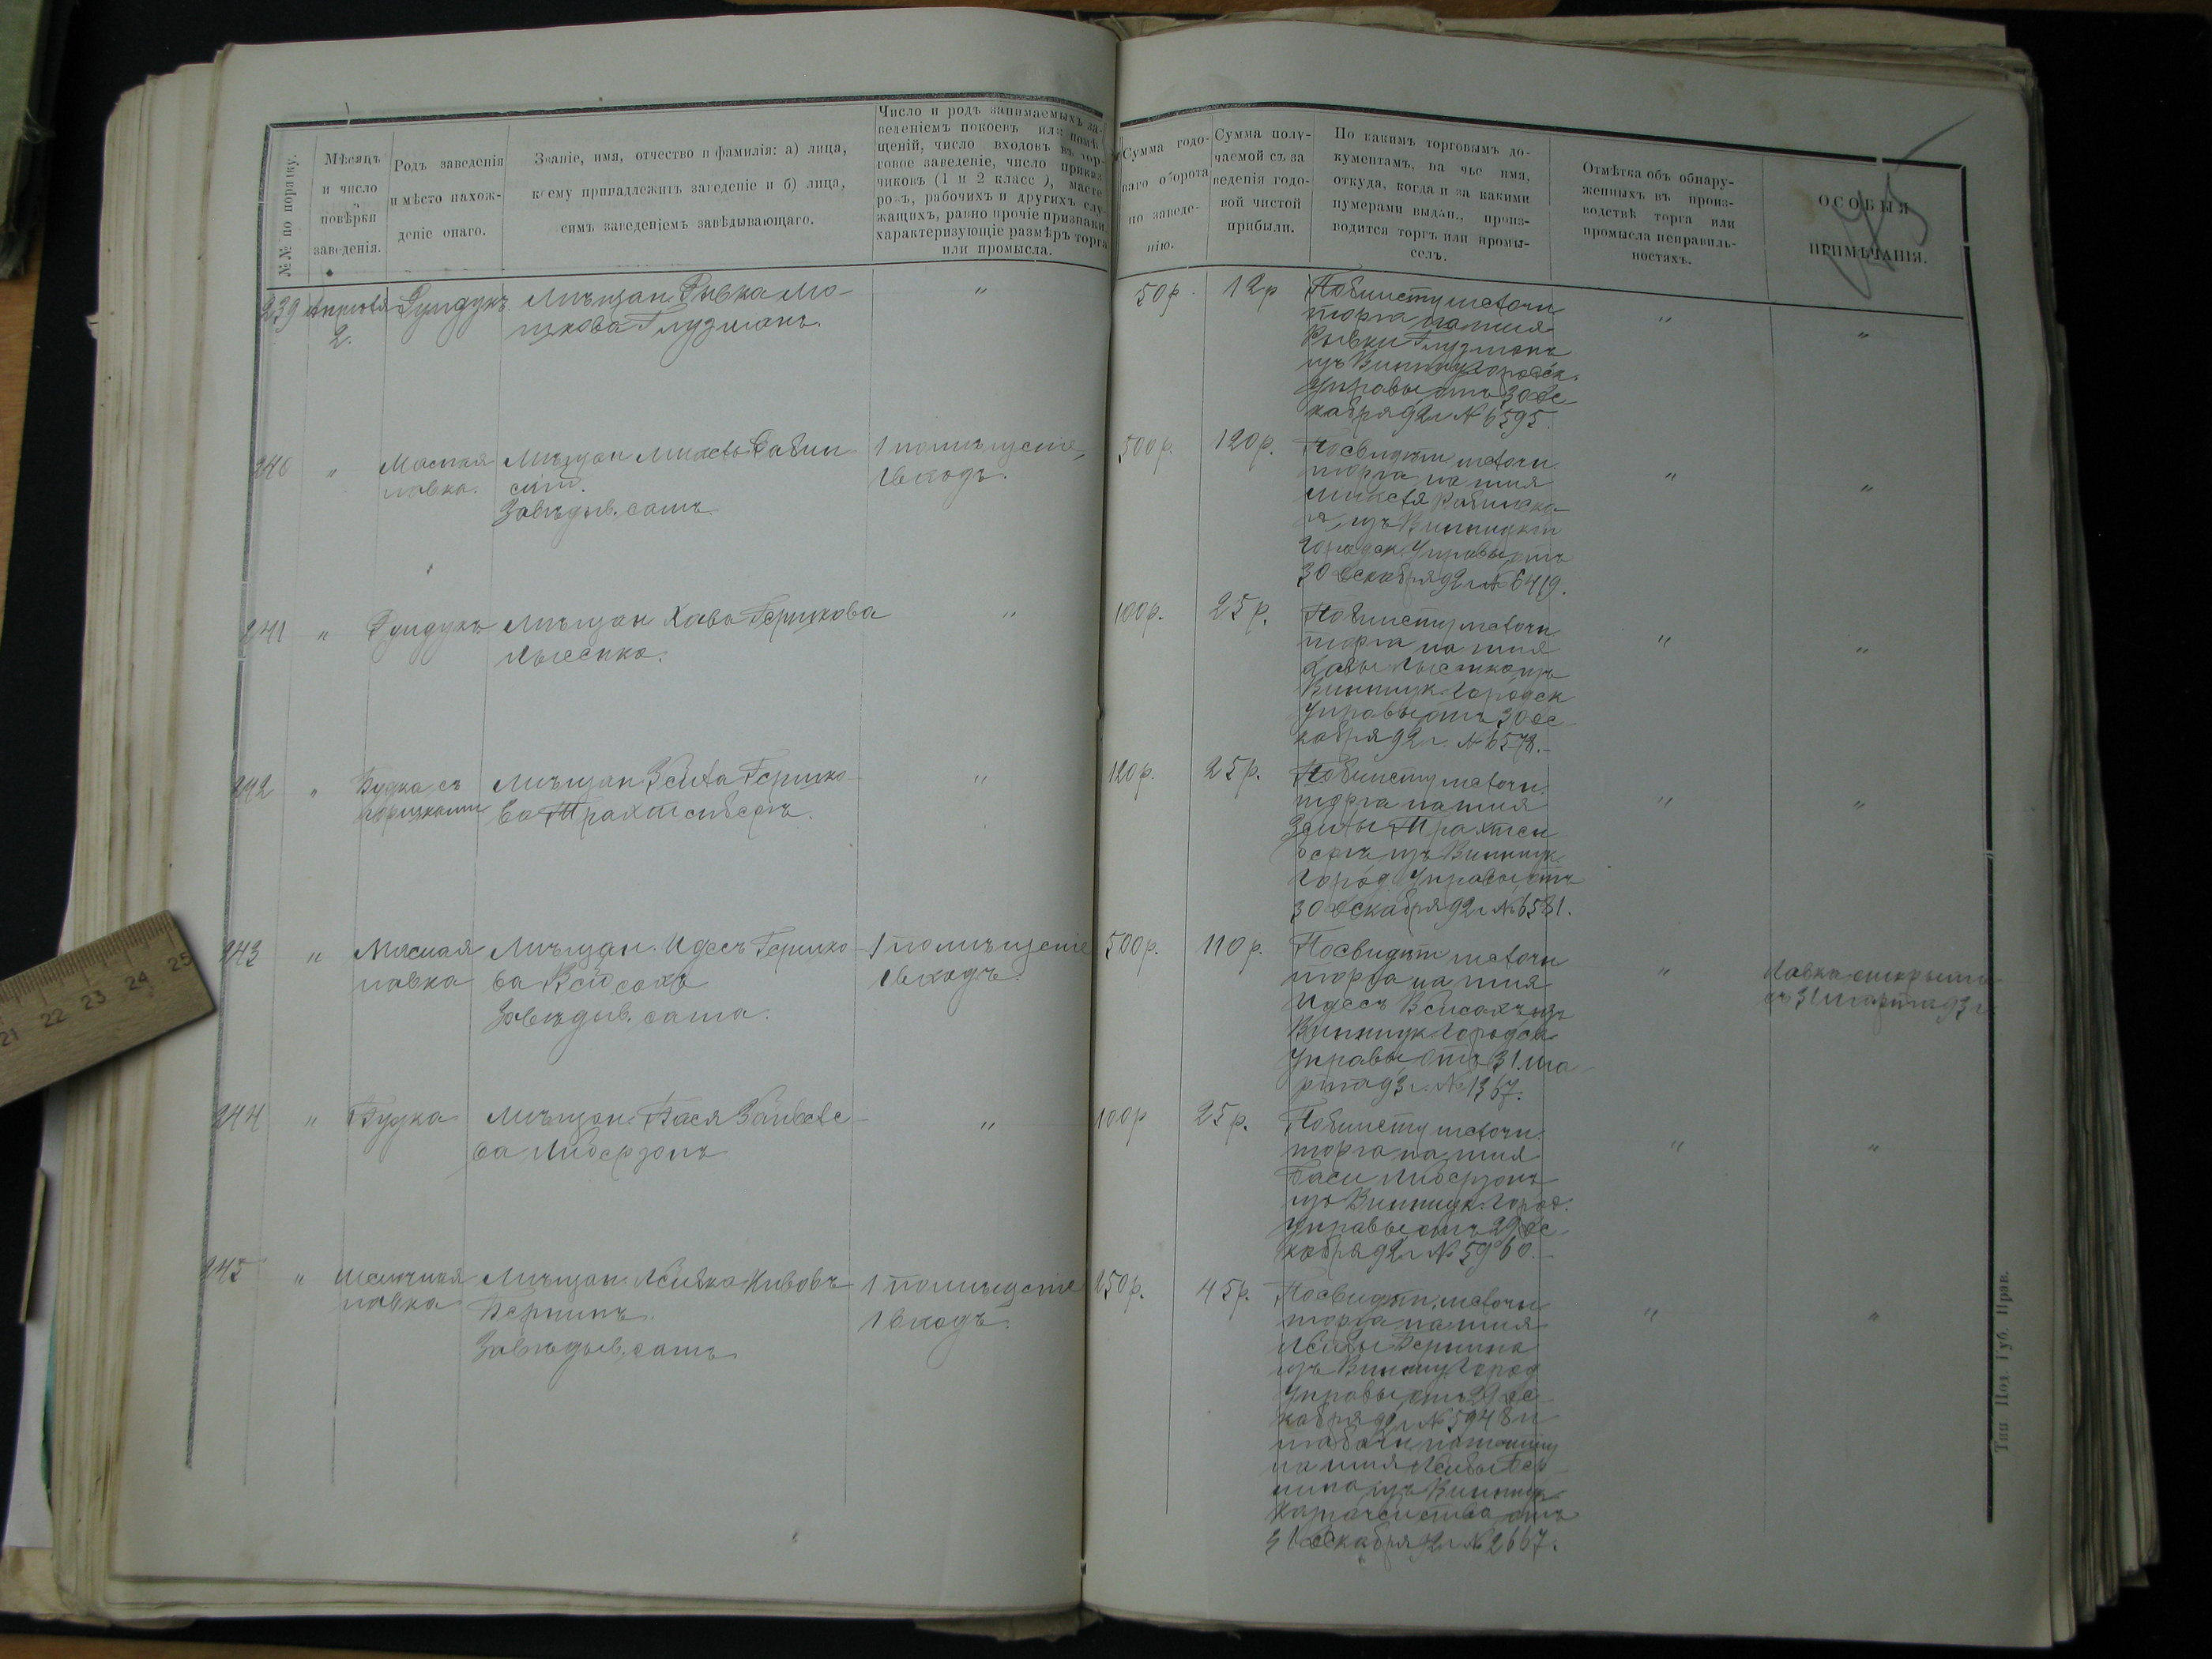 №№ по порядку.
Мѣсяцъ
и число
повѣрки
заведенія.
Родъ заведенія
и мѣсто нахож-
деніе онаго.
Званіе, имя, отчество и фамилія: а) лица,
коему принадлежитъ заведеніе и б) лица,
симъ заведеніемъ завѣдывающаго.
Число и родъ занимаемыхъ за-
веденіемъ покоевъ или помѣ-
щеній, число входовъ въ тор-
говое заведеніе, число приказ-
чиковъ (1 и 2 класс ), масте-
ровъ, рабочихъ и другихъ слу-
жащихъ, равно прочіе признаки,
характеризующіе размѣръ торга
или промысла.
Сумма годо-
ваго оборота
по заведе-
нію.
Сумма полу-
чаемой съ за
веденія годо-
вой чистой
прибыли.
По какимъ торговымъ до-
кументамъ, на чье имя,
откуда, когда и за какими
нумерами выдан., произ-
водится торгъ или промы-
селъ.
Отмѣтка объ обнару-
женныхъ въ произ-
водствѣ торга или
промысла неправиль-
ностяхъ.
ОСОБЫЯ
ПРИМѢЧАНІЯ.
239
Апрѣля
2.
Рундукъ
Мѣщан. Рывка Мо-
шкова Глузманъ.
"
50р.
12р
По билету мелочн
торга на имя
Рывки Глузманъ
изъ Винниц. Городск.
Управы отъ 30 де
кабря 92 г № 6595.
"
"
240
"
Мясная
лавка.
Мѣщан
Завѣдыв. самъ.
1 помѣщеніе,
1 входъ.
500р.
120р.
По свидѣт мелочн.
торга на имя
изъ Винницкой
Городск. Управы отъ
30 декабря 92 г № 6419.
"
"
241
"
Рундукъ
Мѣщан Хава Гершкова
"
100р.
25р.
По билету мелочн
торга на имя
Хавы изъ
Винницк. Городск
Управы отъ 30 де
кабря 92 г. № 6578.
"
"
242
"
Будка съ
горшками
Мѣщан Зейда Гершко-
ва Трахтенберъ.
"
120р.
25р.
По билету мелочн.
торга на имя
Зейды Трахтен
беръ изъ Винницк
Город. Управы отъ
30 декабря 92 г № 6581.
"
"
243
"
Мясная
лавка
Мѣщан. Идесъ Гершко-
ва
Завѣдыв. сама.
1 помѣщеніе
1 входъ.
500р.
110р.
По свидѣт мелочн
торга на имя
Идесъ изъ
Винницк. Городск.
Управы отъ 31 ма
рта 93 г. № 1367.
"
Лавка открыта
съ 31 марта 93 г.
244
"
Будка
Мѣщан. Бася
ва Либерзонъ
"
100р
25р.
По билету мелочн.
торга на имя
Баси Либерзонъ
изъ Винницк. Город.
Управы отъ 29 де
кабря 92 г № 5960.
"
"
245
"
Мелочная
лавка
Мѣщан. Лейвка Кивовъ
Бернинъ.
Завѣдыв. самъ
1 помѣщеніе
1 входъ.
250р.
45р.
По свидѣт. мелочн
торга на имя
Лейвы Бернина
изъ Винниц. Город
Управы отъ 29 де
кабря 92 г № 5948 и
табачн патенту
на имя Лейвы Бер
нина изъ Винницк
Казначейства отъ
31 декабря 92 г № 2667.
"
"
Тип. Под. Губ. Прав.
21 22 23 24 25